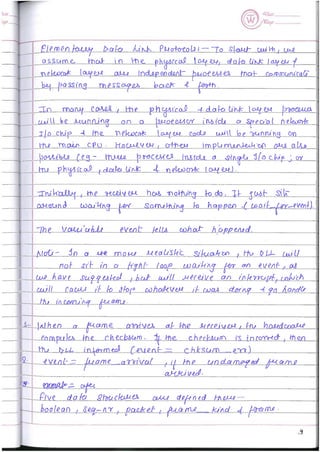 Elementary Data Link Protocols :- To start with, we
assume that in the physical layer, data link layer &
network layer are independent processes that communicate
by passing messages back & forth.
In many cases, the physical & data link layer process
will be running on a processor inside a special network
I/o chip & the network layer code will be running on
the main CPU. However, other implementation are also
possible (eg - three processes inside a single I/o chip; or
the physical, data link & network layer).
Initially, the receiver has nothing to do. It just sits
around waiting for something to happen (wait_for_event)
The Variable event tells what happened.
Note- In a more realistic situation, the DLL will
not sit in a tight loop waiting for an event, as
we have suggested, but will receive an interrupt, which
will cause it to stop whatever it was doing & go handle
the incoming frame.
1. When a frame arrives at the receiver, the hardware
computes the checksum. If the checksum is incorrect, then
the DLL informed (event = chksum_err)
2. event = frame_arrival, if the undamaged frame
arrived.
3
Five data structures are defined there -
boolean, seq-nr, packet, frame_kind & frame